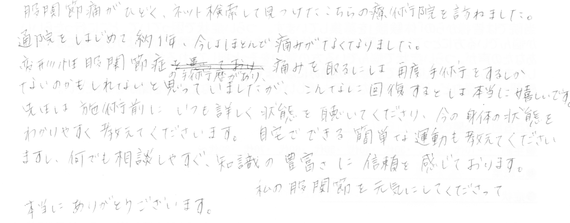 股関節痛がひどく、ネット検索して見つけたこちらの施術院を訪ねました。
通院をはじめて約1年、今はほとんど痛みがなくなりました。
変形性股関節症の手術歴があり、痛みを取るには再度手術をするしか
ないのかもしれないと思っていましたが、こんなに回復するとは本当に嬉しいです。
先生は施術前にいつも詳しく状態を聴いてくださり、今の身体の状態を
わかりやすく教えてくださいます。自宅でできる簡単な運動も教えてください
ますし、何でも相談しやすく、知識の豊富さに信頼を感じております。
私の股関節を元気にしてくださって
本当にありがとうございます。